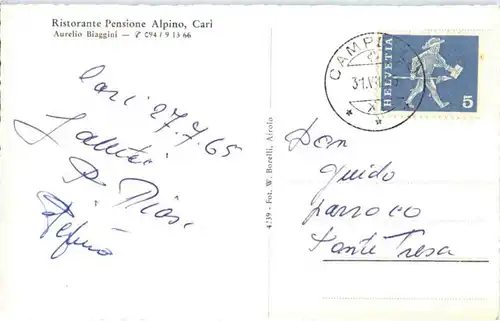 Ristorante Pensione Alpino, Cari
Aurelio Biaggini — ✆ 094 / 9 13 66
Cari 27.7.65
Saluti
P.
Stefano
4739 - Fot. W. Borelli, Airolo
CAMPE
31.V
HELVETIA
5
Don
Guido
parroco
Ponte Tresa